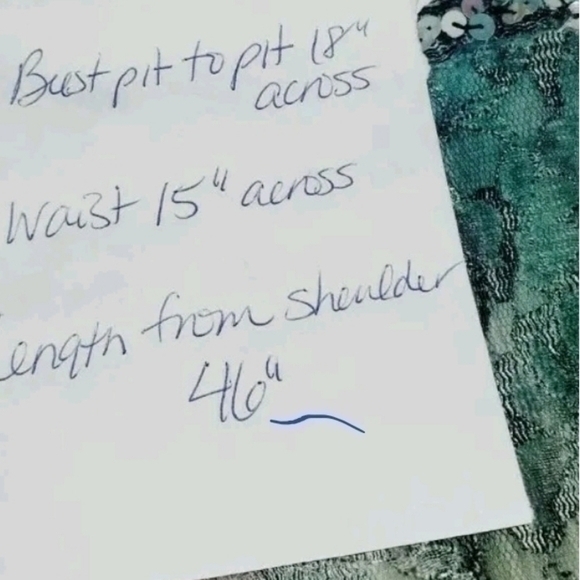 Bust pit to pit 18"
across
Waist 15" across
Length from shoulder
46"